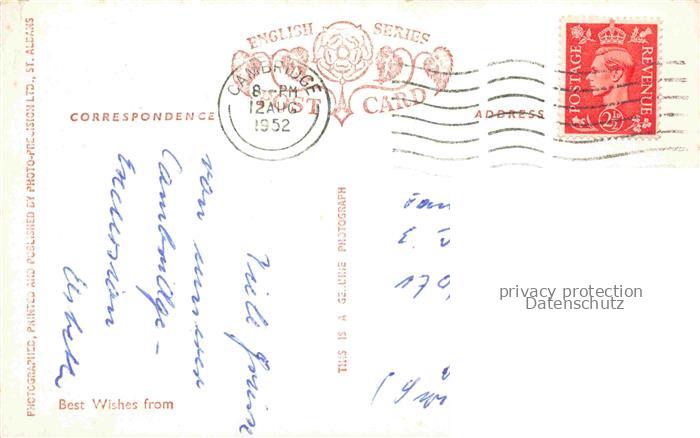 PHOTOGRAPHED, PRINTED AND PUBLISHED BY PHOTO-PRECISION LTD., ST. ALBANS
ENGLISH SERIES
POST CARD
CAMBRIDGE
8 - PM
12 AUG
1952
POSTAGE REVENUE
2½
CORRESPONDENCE
ADDRESS
Viele Grüsse
von unserer
Cambridge-
Excursion
THIS IS A GENUINE PHOTOGRAPH
Best Wishes from
E.
179
privacy protection
Datenschutz